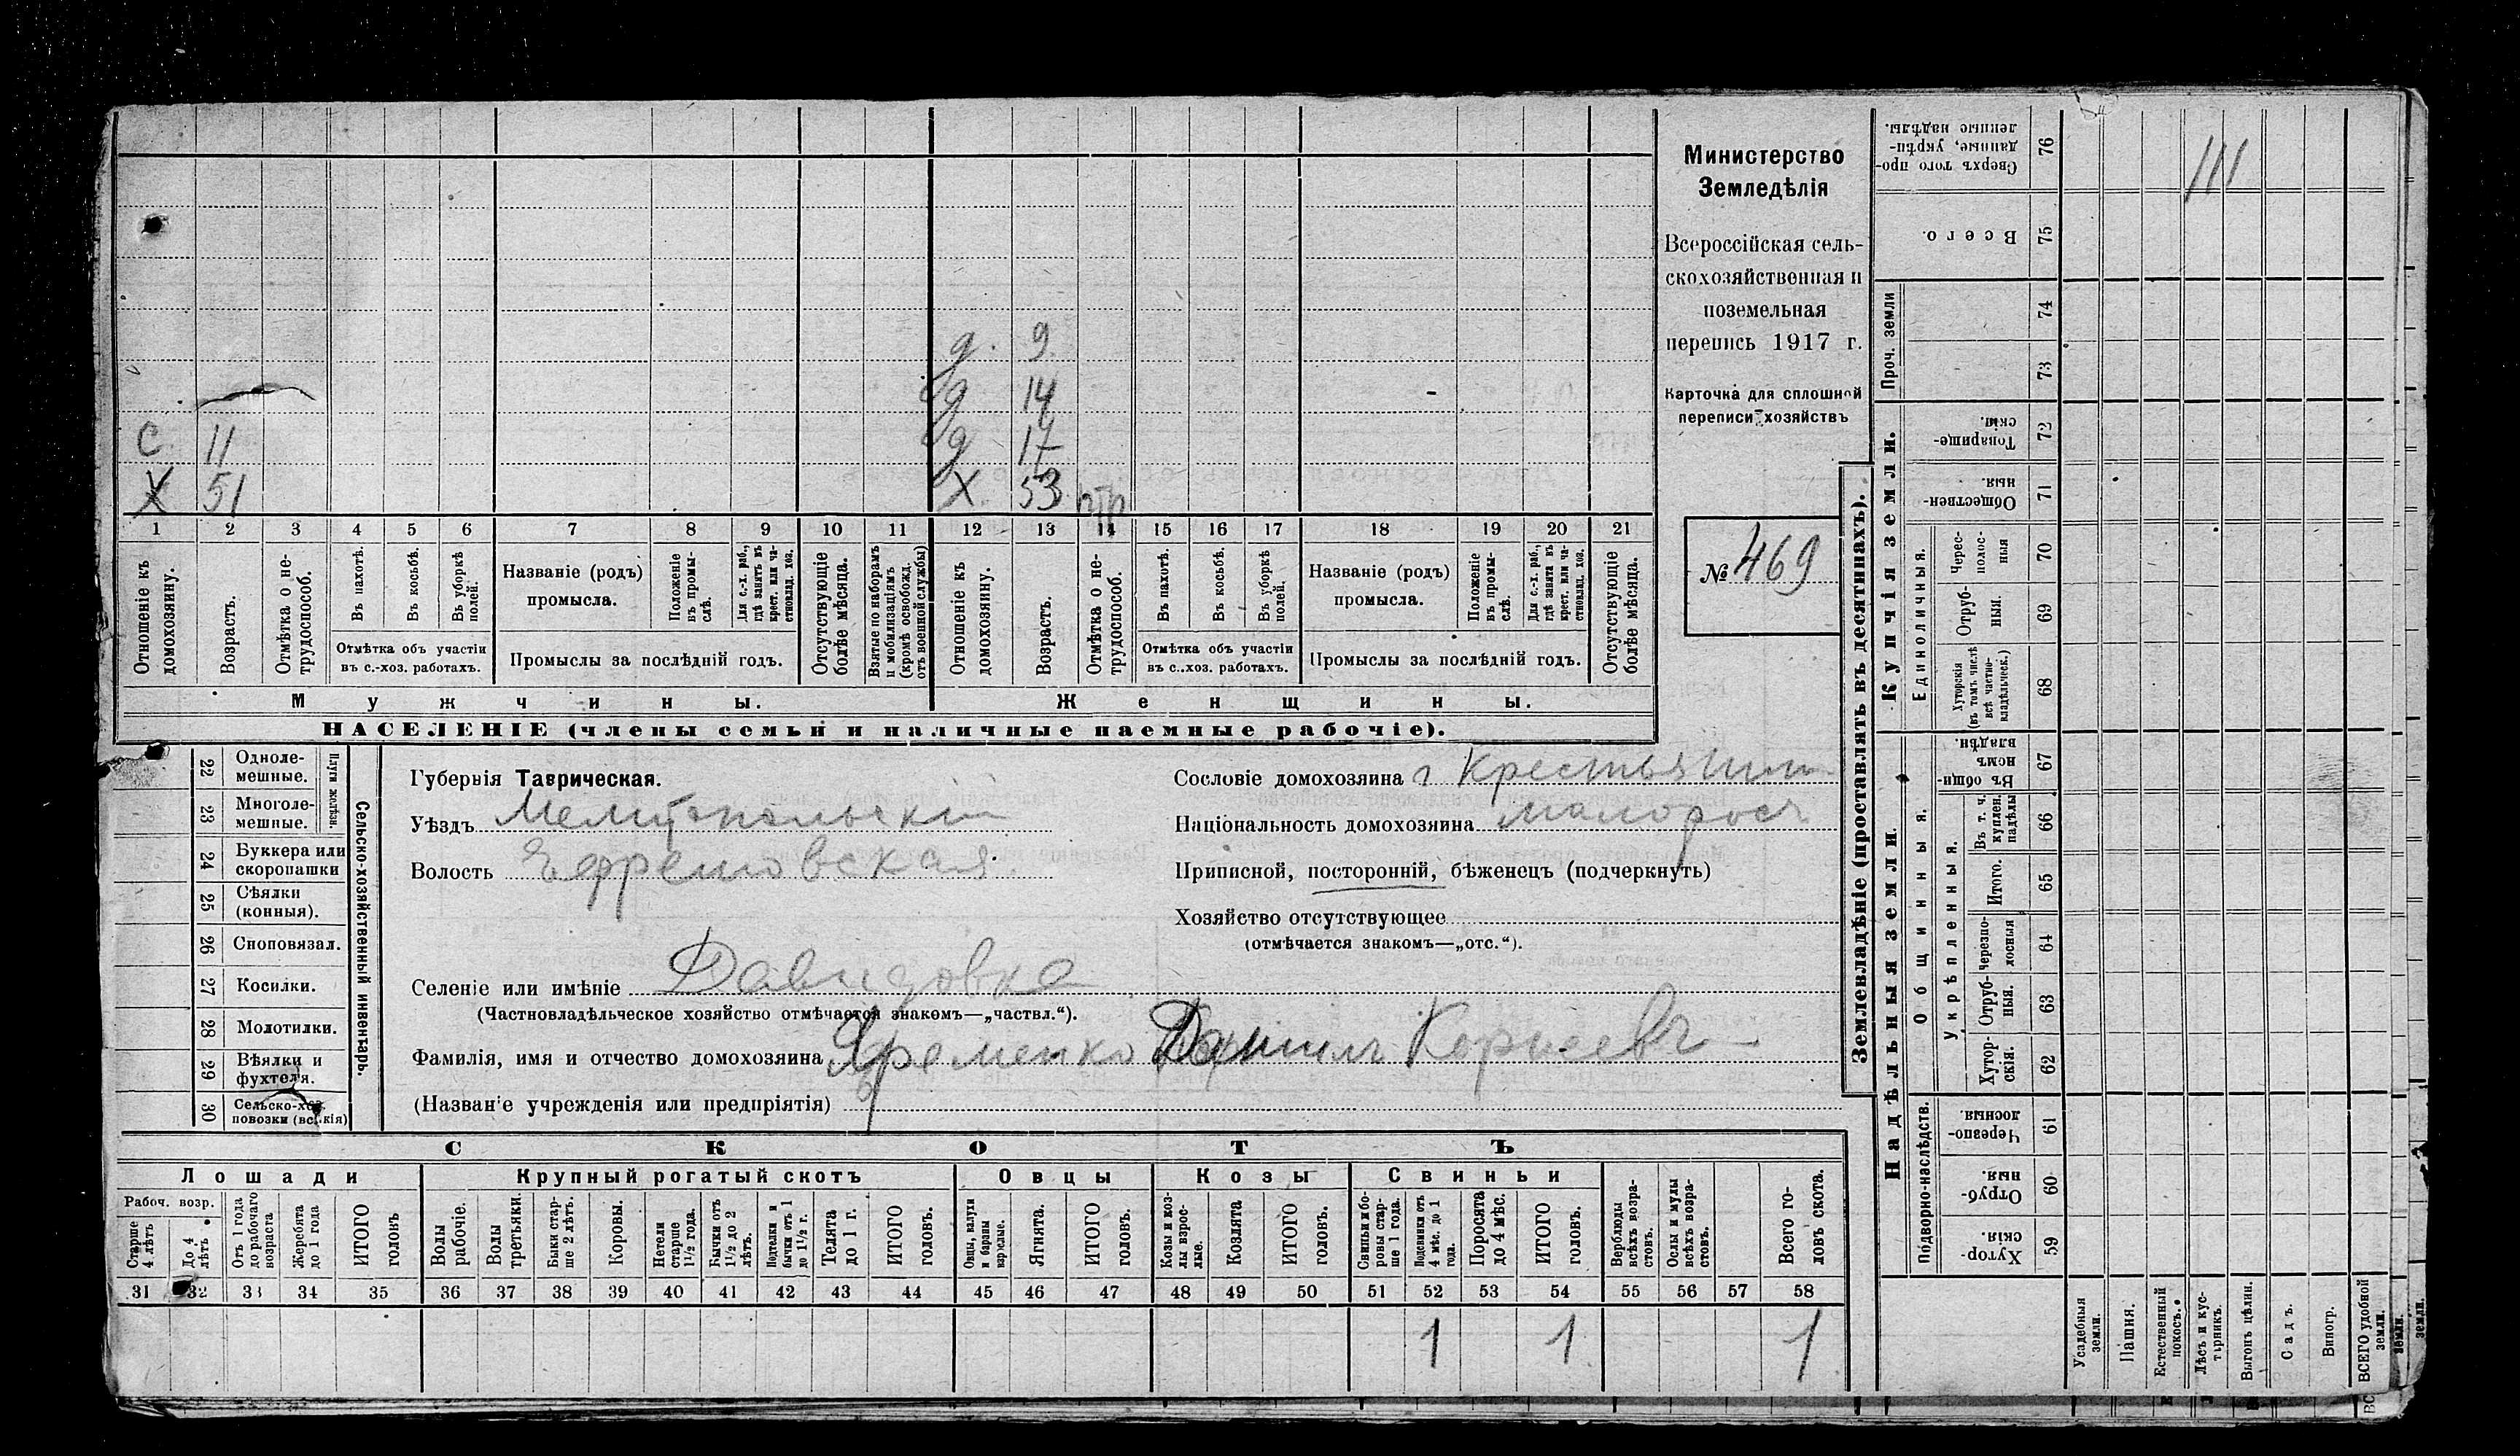 Министерство
Земледѣлія
Всероссійская сель-
скохозяйственная и
поземельная
перепись 1917 г.
Карточка для сплошной
переписи хозяйствъ
№ 469
д. 9
д 14
с 11 д 17
х 51 х 53
1 2 3 4 5 6 7 8 9 10 11 12 13 14 15 16 17 18 19 20 21
Отношеніе къ домохозяину.
Возрастъ.
Отмѣтка о не-трудоспособ.
Въ пахотѣ.
Въ косьбѣ.
Въ уборкѣ полей.
Отмѣтка объ участіи
въ с.-хоз. работахъ.
Названіе (родъ)
промысла.
Положеніе въ промы-слѣ.
Для с.-х. раб., гдѣ занятъ въ крест. или ча-стновлад. хоз.
Промыслы за послѣдній годъ.
Отсутствующіе болѣе мѣсяца.
Взятые по наборамъ и мобилизаціямъ (кромѣ освобожд. отъ военной службы)
Отношеніе къ домохозяину.
Возрастъ.
Отмѣтка о не-трудоспособ.
Въ пахотѣ.
Въ косьбѣ.
Въ уборкѣ полей.
Отмѣтка объ участіи
въ с.-хоз. работахъ.
Названіе (родъ)
промысла.
Положеніе въ промы-слѣ.
Для с.-х. раб., гдѣ занята въ крест. или ча-стновлад. хоз.
Промыслы за послѣдній годъ.
Отсутствующіе болѣе мѣсяца.
Мужчины. Женщины.
НАСЕЛЕНІЕ (члены семьи и наличные наемные рабочіе).
Сельско-хозяйственный инвентарь.
Плуги желѣзн.
22 Одноле-мешные.
23 Многоле-мешные.
24 Буккера или скоропашки
25 Сѣялки (конныя).
26 Сноповязал.
27 Косилки.
28 Молотилки.
29 Вѣялки и фухтеля.
30 Сельско-хоз. повозки (всякія)
Губернія Таврическая.
Уѣздъ Мелитопольскій
Волость Ефремовская
Селеніе или имѣніе Давидовка
(Частновладѣльческое хозяйство отмѣчается знакомъ—„частвл.“).
Фамилія, имя и отчество домохозяина Яременко Даниилъ Корнеевъ
(Названіе учрежденія или предпріятія)
Сословіе домохозяина крестьянин
Національность домохозяина малоросъ
Приписной, посторонній, бѣженецъ (подчеркнуть)
Хозяйство отсутствующее
(отмѣчается знакомъ—„отс.“).
СКОТЪ
Лошади Крупный рогатый скотъ Овцы Козы Свиньи
Рабоч. возр.
Старше 4 лѣтъ
До 4 лѣтъ
Отъ 1 года до рабочаго возраста
Жеребята до 1 года
ИТОГО головъ
Волы рабочіе.
Волы третьяки.
Быки стар-ше 2 лѣтъ.
Коровы.
Нетели старше 1½ года.
Бычки отъ 1½ до 2 лѣтъ.
Подтелки и бычки отъ 1 до 1½ г.
Телята до 1 г.
ИТОГО головъ.
Овцы, валухи и бараны взрослые.
Ягнята.
ИТОГО головъ.
Козы и коз-лы взрос-лые.
Козлята
ИТОГО головъ.
Свиньи и бо-ровы стар-ше 1 года.
Подсвинки отъ 4 мѣс. до 1 года.
Поросята до 4 мѣс.
ИТОГО головъ.
Верблюды всѣхъ возра-стовъ.
Ослы и мулы всѣхъ возра-стовъ.
Всего го-ловъ скота.
31 32 33 34 35 36 37 38 39 40 41 42 43 44 45 46 47 48 49 50 51 52 53 54 55 56 57 58
1 1 1
Землевладѣніе (проставлять въ десятинахъ).
Купчія земли.
Надѣльныя земли.
Проч. земли
Единоличныя.
Общинныя.
Укрѣпленныя.
Подворно-наслѣдств.
Сверхъ того про-данные, укрѣп-ленные надѣлы. 76
Всего. 75
74
73
Товарище-скія. 72
Обществен-ныя. 71
Черес-полос-ныя 70
Отруб-ныя. 69
Хуторскія (въ томъ числѣ всѣ частно-владѣльческ.) 68
Въ общин-номъ владѣн. 67
Въ т. ч. куплен. надѣлы 66
Итого. 65
Черезпо-лосныя 64
Отруб-ныя. 63
Хутор-скія. 62
Черезпо-лосныя. 61
Отруб-ныя. 60
Хутор-скія. 59
Усадебныя земли.
Пашня.
Естественный покосъ.
Лѣсъ и кус-тарникъ.
Выгонъ цѣлин.
Садъ.
Виногр.
ВСЕГО удобной земли.